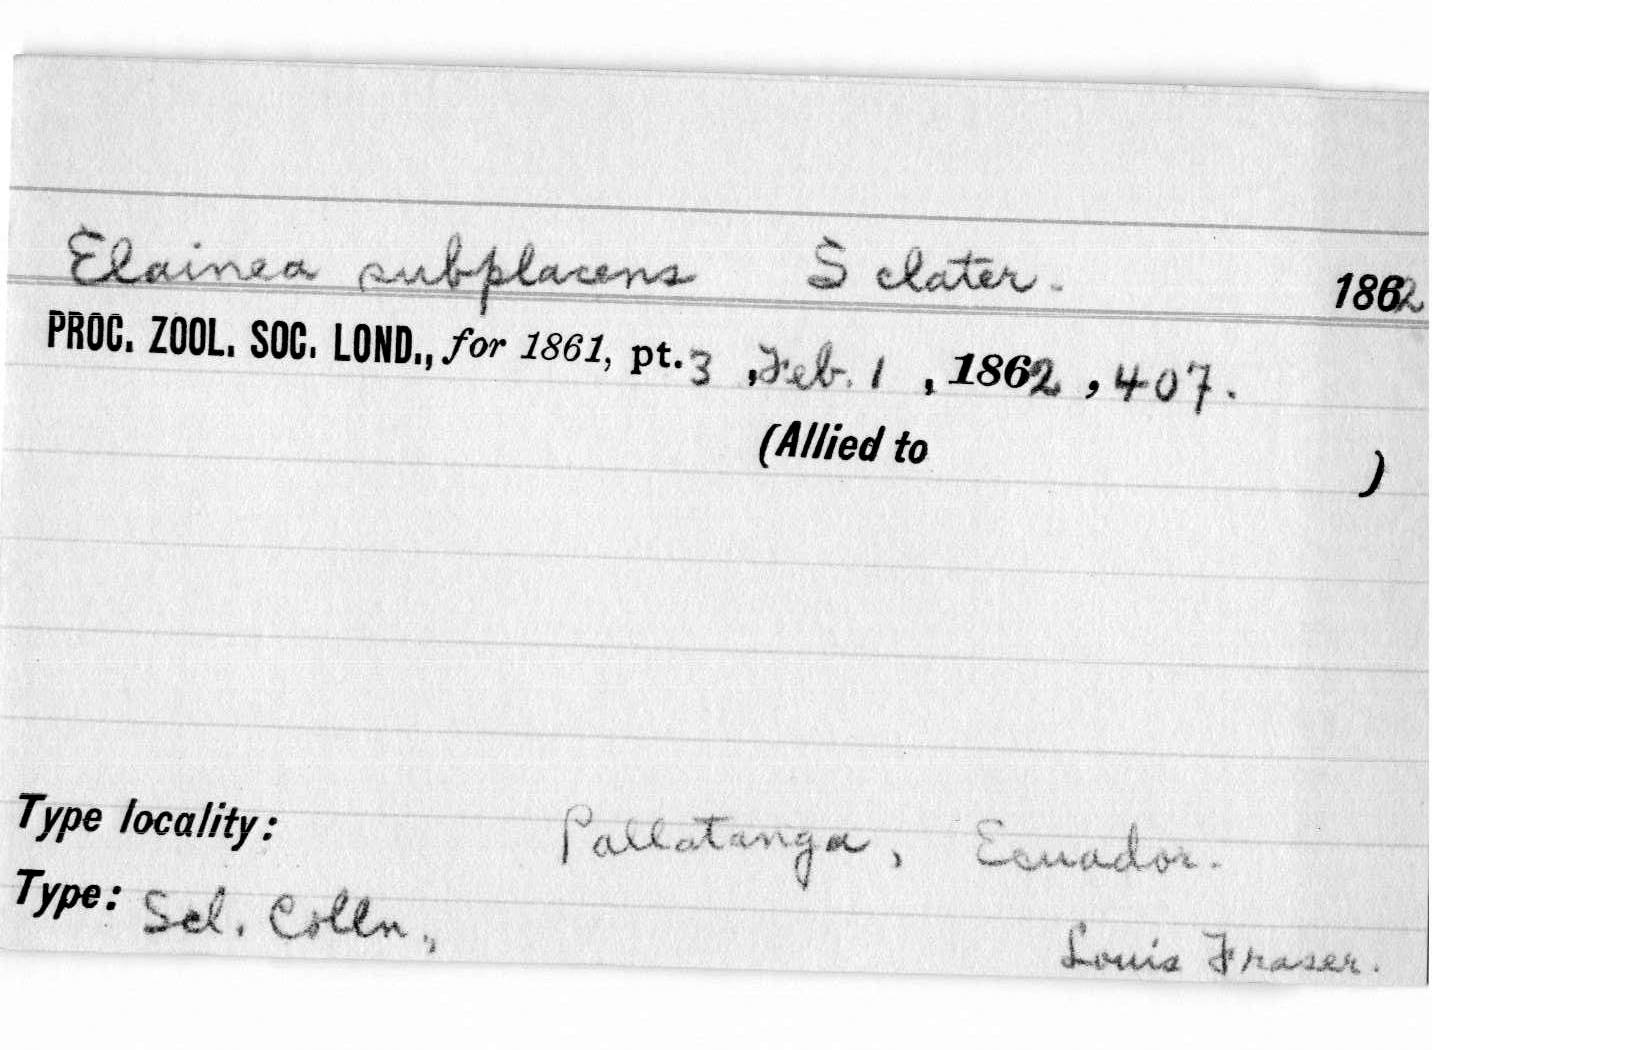 Elainea subplacens Sclater. 1862
PROC. ZOOL. SOC. LOND., for 1861, pt. 3, Feb. 1, 1862, 407.
(Allied to )
Type locality: Pallatanga, Ecuador.
Type: Scl. Colln., Louis Fraser.